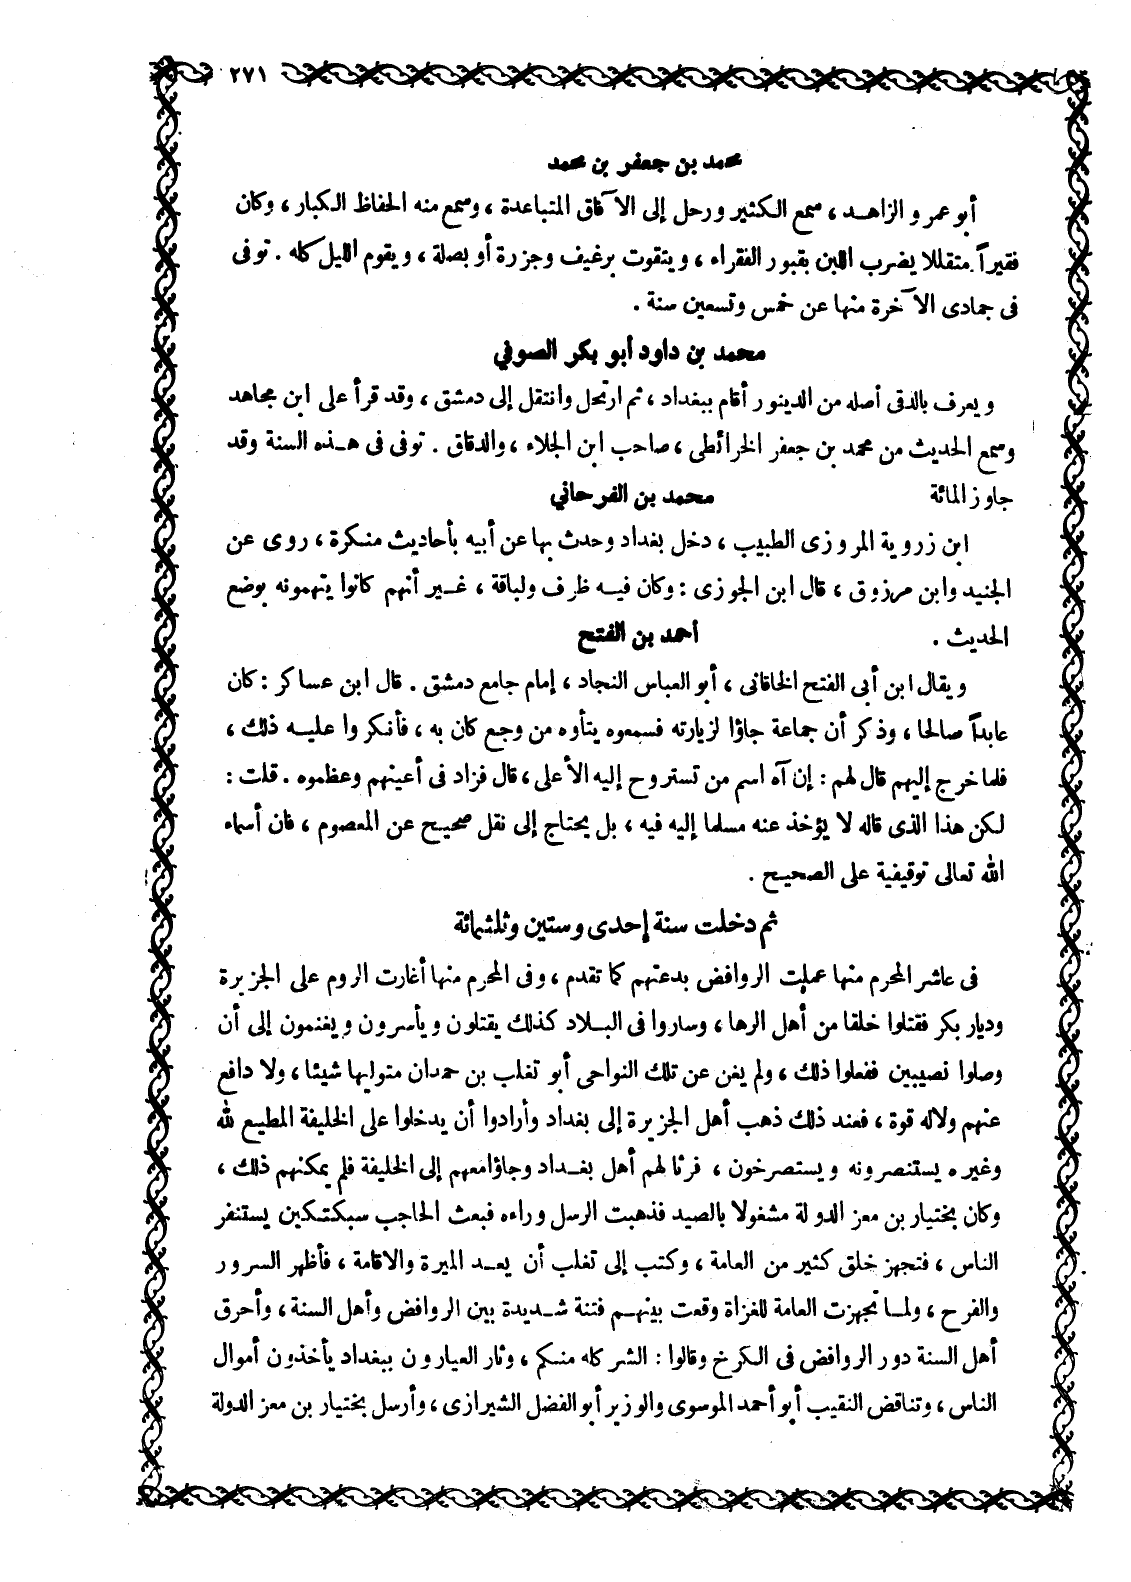 ٢٧١
محمد بن جعفر بن محمد
أبو عمرو الزاهد ، سمع الكثير ورحل إلى الآفاق المتباعدة ، وسمع منه الحفاظ الكبار ، وكان
فقيراً متقللا يضرب اللبن بقبور الفقراء ، ويتقوت برغيف وجزرة أو بصلة ، ويقوم الليل كله . توفى
فى جمادى الآخرة منها عن خمس وتسعين سنة .
محمد بن داود أبو بكر الصوفي
ويعرف بالدقى أصله من الدينور أقام ببغداد ، ثم ارتحل وانتقل إلى دمشق ، وقد قرأ على ابن مجاهد
وسمع الحديث من محمد بن جعفر الخرائطى ، صاحب ابن الجلاء ، والدقاق . توفى فى هذه السنة وقد
جاوز المائة
محمد بن الفرحاني
ابن زروية المروزى الطبيب ، دخل بغداد وحدث بها عن أبيه بأحاديث منكرة ، روى عن
الجنيد وابن مرزوق ، قال ابن الجوزى : وكان فيه ظرف ولباقة ، غير أنهم كانوا يتهمونه بوضع
الحديث .
أحمد بن الفتح
ويقال ابن أبى الفتح الخاقانى ، أبو العباس النجاد ، إمام جامع دمشق . قال ابن عساكر : كان
عابداً صالحا ، وذكر أن جماعة جاؤا لزيارته فسمعوه يتأوه من وجع كان به ، فأنكروا عليه ذلك ،
فلما خرج إليهم قال لهم : إن آه اسم من تستروح إليه الأعلى ، قال فزاد فى أعينهم وعظموه . قلت :
لكن هذا الذى قاله لا يؤخذ عنه مسلما إليه فيه ، بل يحتاج إلى نقل صحيح عن المعصوم ، فان أسماء
الله تعالى توقيفية على الصحيح .
ثم دخلت سنة إحدى وستين وثلثمائة
فى عاشر المحرم منها عملت الروافض بدعتهم كما تقدم ، وفى المحرم منها أغارت الروم على الجزيرة
وديار بكر فقتلوا خلقا من أهل الرها ، وساروا فى البلاد كذلك يقتلون ويأسرون ويغنمون إلى أن
وصلوا نصيبين ففعلوا ذلك ، ولم يغن عن تلك النواحى أبو تغلب بن حمدان متوليها شيئا ، ولا دافع
عنهم ولاله قوة ، فعند ذلك ذهب أهل الجزيرة إلى بغداد وأرادوا أن يدخلوا على الخليفة المطيع لله
وغيره يستنصرونه ويستصرخون ، فرثا لهم أهل بغداد وجاؤامعهم إلى الخليفة فلم يمكنهم ذلك ،
وكان بختيار بن معز الدولة مشغولا بالصيد فذهبت الرسل وراءه فبعث الحاجب سبكتكين يستنفر
الناس ، فتجهز خلق كثير من العامة ، وكتب إلى تغلب أن يعد الميرة والاقامة ، فأظهر السرور
والفرح ، ولما تجهزت العامة للغزاة وقعت بينهم فتنة شديدة بين الروافض وأهل السنة ، وأحرق
أهل السنة دور الروافض فى الكرخ وقالوا : الشر كله منكم ، وثار العيارون ببغداد يأخذون أموال
الناس ، وتناقض النقيب أبو أحمد الموسوى والوزير أبو الفضل الشيرازى ، وأرسل بختيار بن معز الدولة